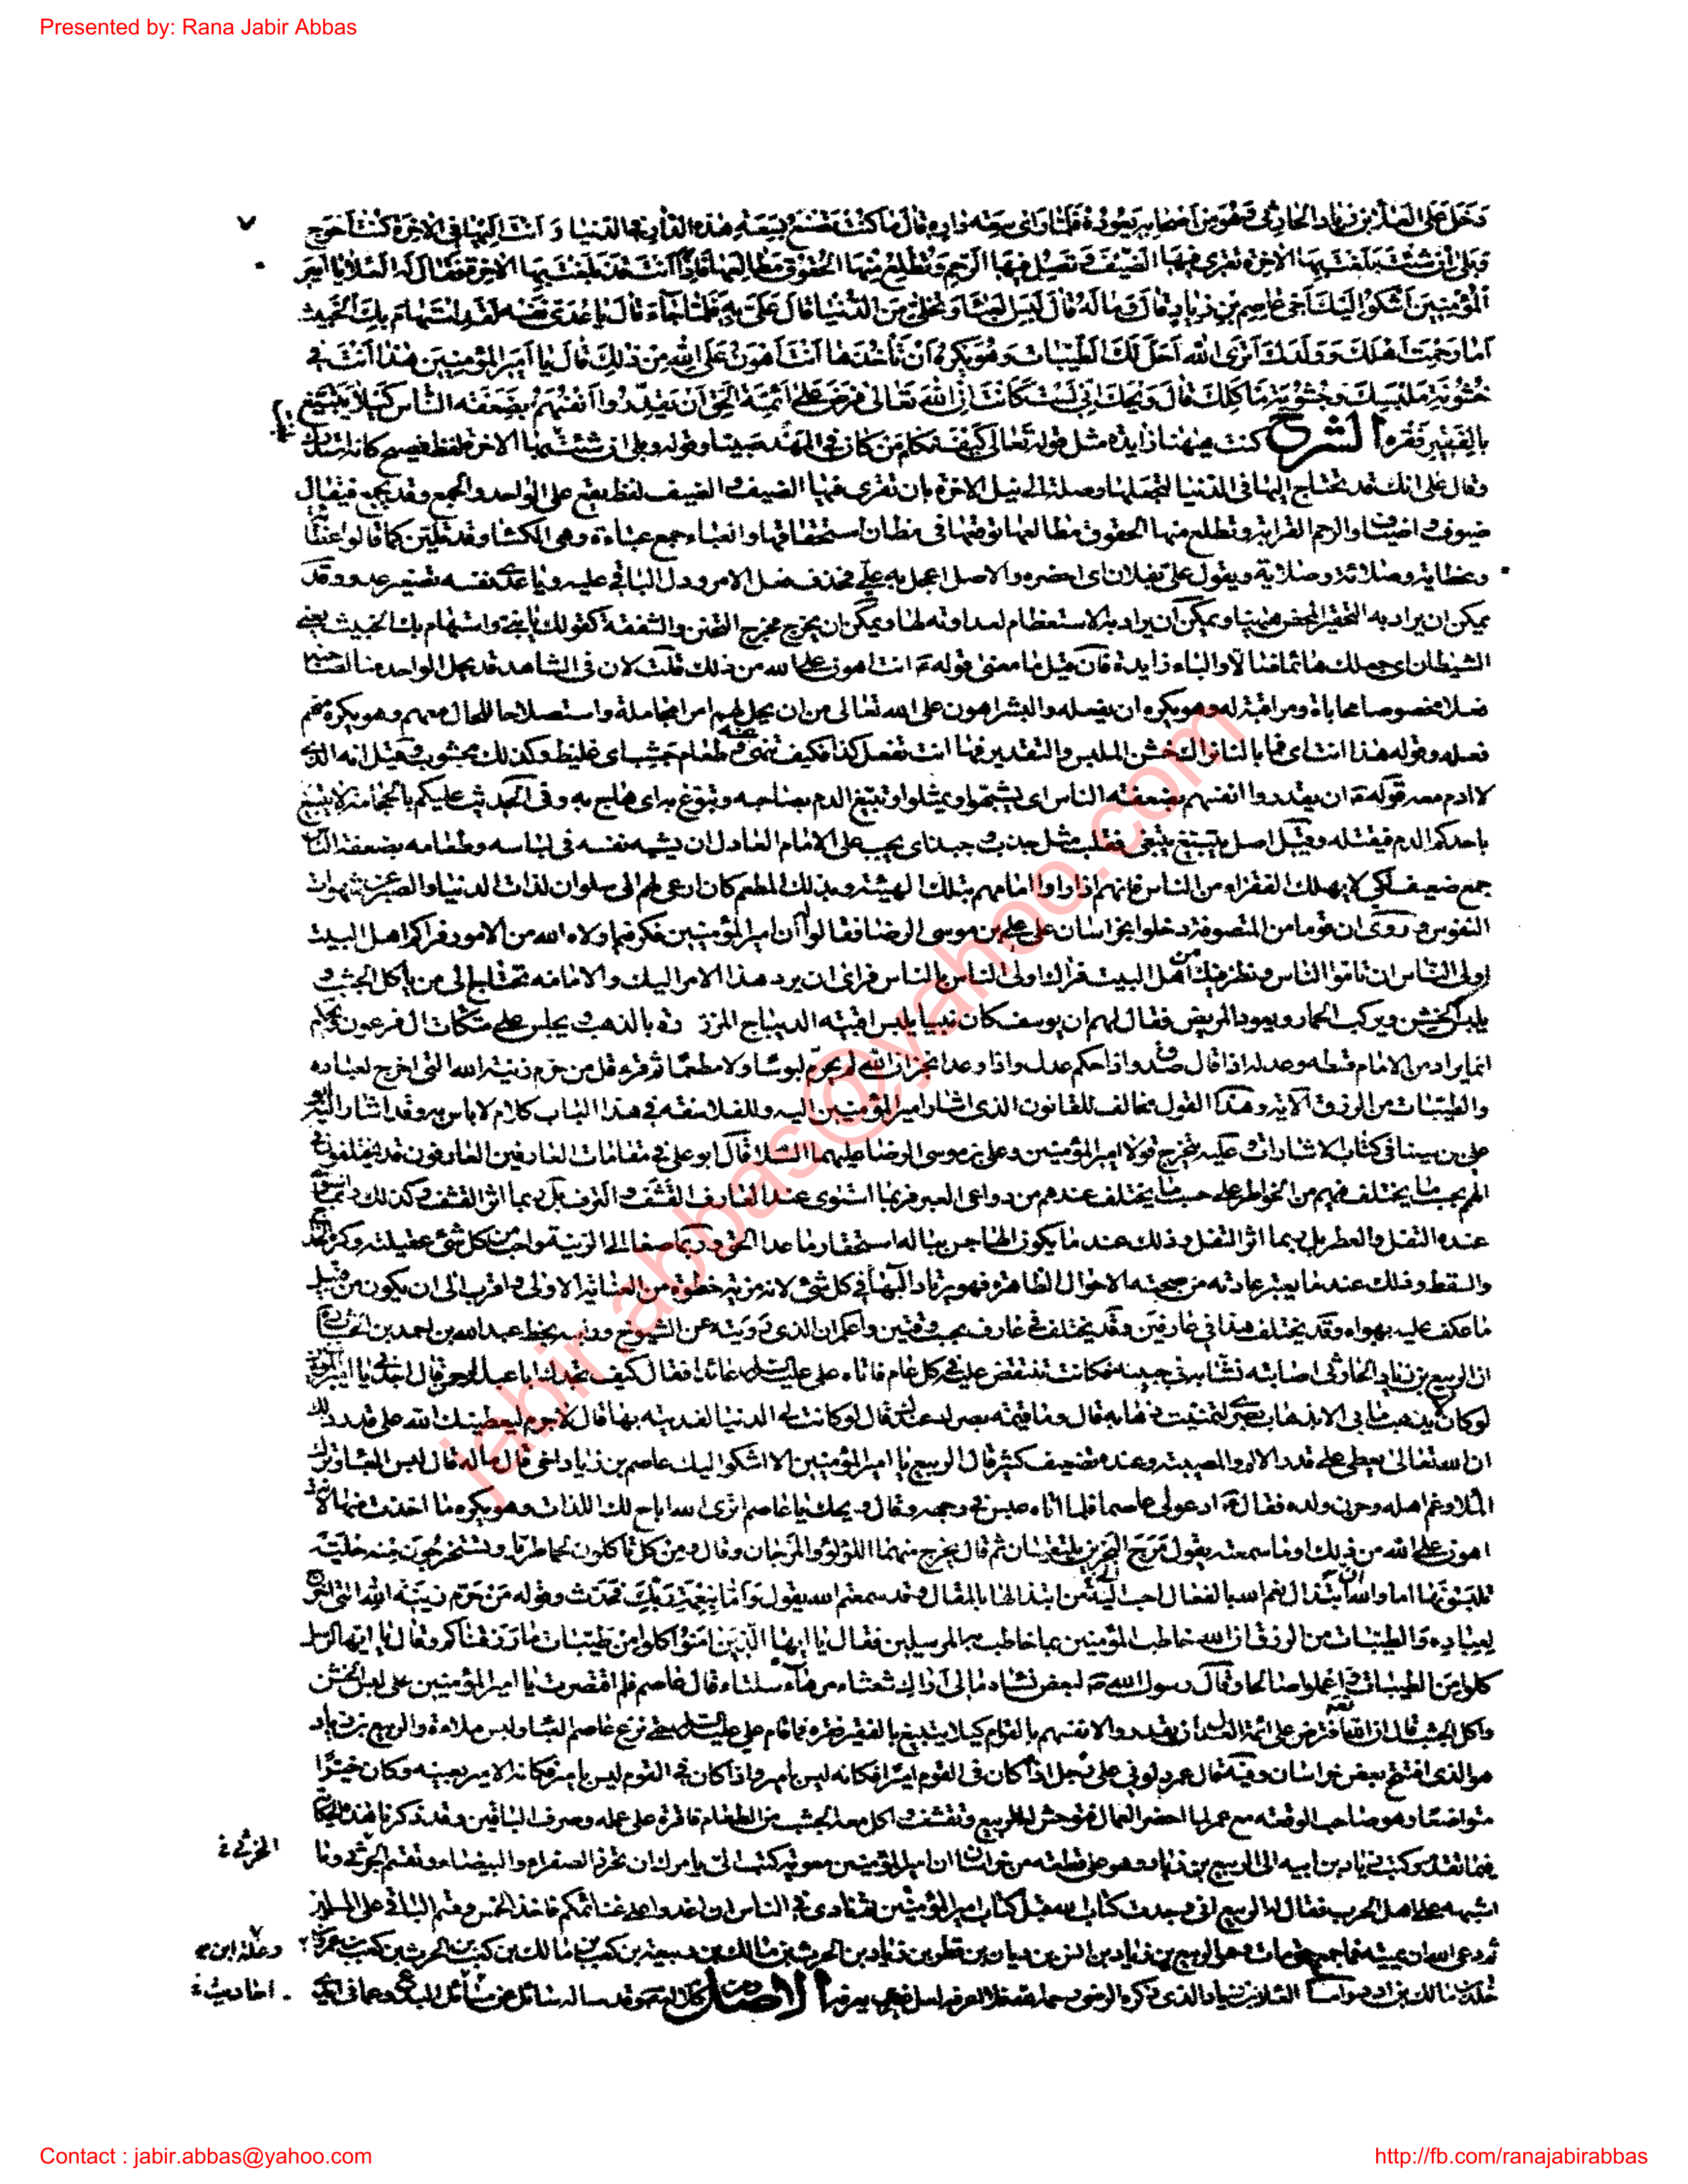 Presented by: Rana Jabir Abbas
٧
دَخَلَ عَلَى العَلاء بْنِ زِيادٍ الحارِثى وَهُوَ مِنْ اَصْحابِه يَعُودُهُ فَلَمّا رَاى سِعَةَ دارِهِ قالَ ما كُنْتَ تَصْنَعُ بِسِعَةِ هٰذِهِ الدّارِ فِى الدُّنْيا وَ اَنْتَ اِلَيْها فِى الْاٰخِرَةِ كُنْتَ اَحْوَجَ
وَبَلى اِنْ شِئْتَ بَلَغْتَ بِهَا الْاٰخِرَةَ تَقْرِى فيهَا الضَّيْفَ وَ تَصِلُ فيهَا الرَّحِمَ وَتُطْلِعُ مِنْهَا الْحُقُوقَ مَطالِعَها فَاِذًا اَنْتَ قَدْ بَلَغْتَ بِهَا الْاٰخِرَةَ فَقالَ لَهُ الْعَلاءُ يا اَميرَ
الْمُؤْمِنينَ اَشْكُو اِلَيْكَ اَخى عاصِمَ بْنَ زِيادٍ قالَ وَما لَهُ قالَ لَبِسَ الْعَباءَ وَتَخَلّى مِنَ الدُّنْيا قالَ عَلَىَّ بِهِ فَلَمّا جاءَ قالَ يا عُدَىَّ نَفْسِهِ لَقَدِ اسْتَهامَ بِكَ الْخَبيثُ
اَما رَحِمْتَ اَهْلَكَ وَوَلَدَكَ اَتَرَى اللهَ اَحَلَّ لَكَ الطَّيِّباتِ وَهُوَ يَكْرَهُ اَنْ تَأْخُذَها اَنْتَ اَهْوَنُ عَلَى اللهِ مِنْ ذلِكَ قالَ يا اَميرَ الْمُؤْمِنينَ هٰذا اَنْتَ فى
خُشُونَةِ مَلْبَسِكَ وَجُشُوبَةِ مَأكَلِكَ قالَ وَيْحَكَ اِنّى لَسْتُ كَاَنْتَ اِنَّ اللهَ تَعالى فَرَضَ عَلى اَئِمَّةِ الْحَقِّ اَنْ يُقَدِّرُوا اَنْفُسَهُمْ بِضَعَفَةِ النّاسِ كَيْلا يَتَبَيَّغَ
بِالْفَقيرِ فَقْرُهُ الشرح كنت هٰهنا زايدة مثل قوله تعالى كيف نكلم من كان فى المهد صبيا وقوله وبلى ان شئت بلغت بها الاخرة لفظ فصيح كانه استدرك
وقال على انك قد تحتاج اليها فى الدنيا لتجعلها وصلة الى نيل الاخرة بان تقرى فيها الضيف و الضيف لفظ يقع على الواحد والجمع وقد يجمع فيقال
ضيوف و اضياف والرحم القرابة وتطلع منها الحقوق مطالعها توقعها فى مظان استحقاقها والعباء جمع عباءة وهى الكساء وقد تلين كما قالوا
وعظاية وصلائة وصلاية ويقول على بفلان اى احضره والاصل اعجل به على فحذف فعل الامر ودل الباقى عليه ويا عدى نفسه تصغير عدو وقد
يمكن ان يراد به التحقير المحض ههنا ويمكن ان يراد به الاستعظام لعداوته لها ويمكن ان يخرج مخرج التحنن والشفقة كقولك يا بنى واستهام بك الخبيث يعنى
الشيطان اى جعلك هائما ضالا والباء زايدة فان قيل ما معنى قوله انت اهون على الله من ذلك قلت لان فى الشاهد قد يحل الواحد منا لصاحبه
فعلا مخصوصا محاباة ومراقبة له وهو يكره ان يفعله والبشر اهون على الله تعالى من ان يحل لهم امرا مجاملة واستصلاحا للحال معهم وهو يكره منهم
فعله وقوله هذا انت اى فما بالنا نراك خشن الملبس والتقدير فها انت تفعل كذا فكيف تنهى عنه وطعام جشب اى غليظ وكذلك مجشوب وقيل انه الذى
لا ادم معه قوله ان يقدروا انفسهم بضعفة الناس اى يشبهوا ويمثلوا وتبيغ الدم بصاحبه وتبوغ به اى هاج به وفى الحديث عليكم بالحجامة لا يتبيغ
باحدكم الدم فيقتله وقيل اصل يتبيغ يتبغى فقلب مثل جذب و جبذ اى يجب على الامام العادل ان يشبه نفسه فى لباسه وطعامه بضعفة الناس
جمع ضعيف لكى لا يهلك الفقراء من الناس فانهم اذا راوا امامهم بتلك الهيئة وبذلك المطعم كان ادعى لهم الى سلوان لذات الدنيا والصبر عن شهوات
النفوس وروى ان قوما من المتصوفة دخلوا بخراسان على على بن موسى الرضا فقالوا ان امير المؤمنين فكر فيما ولاه الله من الامور فراكم اهل البيت
اولى الناس ان تأموا الناس ونظر فيك من اهل البيت فراك اولى الناس بالناس فراى ان يرد هذا الامر اليك والامامة تحتاج الى من ياكل الجشب و
يلبس الخشن ويركب الحمار ويعود المريض فقال لهم ان يوسف كان نبيا يلبس اقبية الديباج المزردة بالذهب و يجلس على متكات ال فرعون ويحكم
انما يراد من الامام قسطه وعدله اذا قال صدق واذا حكم عدل واذا وعد انجز ان الله لم يحرم لبوسا ولا مطعما ثم قرء قل من حرم زينة الله التى اخرج لعباده
والطيبات من الرزق الاية وهذا القول مخالف للقانون الذى اشار امير المؤمنين اليه وللفلاسفة فى هذا الباب كلام لا باس به وقد اشار اليه ابو
على بن سينا فى كتاب الاشارات وعليه يتخرج قولا امير المؤمنين وعلى بن موسى الرضا عليهما السلام قال ابو على فى مقامات العارفين العارفون قد يختلفون فى
الهمم بحسب ما يختلف فيهم من الخواطر على حسب ما يختلف عندهم من دواعى العبر فربما استوى عند العارف القشف و الترف بل ربما اثر القشف و كذلك ربما استوى
عنده التفل والعطر بل ربما اثر التفل وذلك عند ما يكون الهاجس بباله استحقار ما عدا الحق وربما صغا الى الزينة واحب من كل شئ عقيلته وكره الخداج
والسقط وذلك عند ما يعتبر عادته من صحبته الاحوال الظاهرة فهو يرتاد البهاء فى كل شئ لانه مزية حظوة من العناية الاولى و اقرب الى ان يكون من قبيل
ما عكف عليه بهواه وقد يختلف هذا فى عارفين وقد يختلف فى عارف بحسب وقتين واعلم ان الذى رويته عن الشيوخ ورايته بخط عبد الله بن احمد بن الخشاب
ان الربيع بن زياد الحارثى اصابته نشابة فى جبينه فكانت تنتقض عليه فى كل عام فاتاه على عليه السلام عائدا فقال كيف تجدك يا ابا عبد الرحمن قال اجدنى يا امير المؤمنين
لو كان لا يذهب ما بى الا بذهاب بصرى لتمنيت ذهابه قال وما قيمة بصرك عندك قال لو كانت لى الدنيا لفديته بها قال لا جرم ليعطينك الله على قدر ذلك
ان الله تعالى يعطى على قدر الالم والمصيبة وعنده تضعيف كثير قال الربيع يا امير المؤمنين الا اشكو اليك عاصم بن زياد اخى قال ما له قال لبس العباء وترك
الملاء وغم اهله وحزن ولده فقال ادعوا لى عاصما فلما اتاه عبس فى وجهه وقال ويحك يا عاصم اترى الله اباح لك اللذات وهو يكره ما اخذت منها لانت
اهون على الله من ذلك اوما سمعته يقول مَرَجَ الْبَحْرَيْنِ يَلْتَقِيانِ ثم قال يخرج منهما اللؤلؤ والمرجان وقال ومن كل تاكلون لحما طريا وتستخرجون منه حلية
تلبسونها اما والله ان ابتذال نعم الله بالفعال احب اليه من ابتذالها بالمقال وقد سمعتم الله يقول وَاَمّا بِنِعْمَةِ رَبِّكَ فَحَدِّثْ وقوله مَنْ حَرَّمَ زينَةَ اللهِ الَّتى اَخْرَجَ
لِعِبادِهِ وَالطَّيِّباتِ مِنَ الرِّزْقِ ان الله خاطب المؤمنين بما خاطب به المرسلين فقال يا اَيُّهَا الَّذينَ امَنُوا كُلُوا مِنْ طَيِّباتِ ما رَزَقْناكُمْ وقال يا ايها الرسل
كُلُوا مِنَ الطَّيِّباتِ وَاعْمَلُوا صالِحًا وقال رسول الله لبعض نسائه مالى اراك شعثاء مرهاء سلتاء قال عاصم فلم اقتصرت يا امير المؤمنين على لبس الخشن
واكل الجشب قال ان الله تعالى افترض على ائمة العدل ان يقدروا لانفسهم بالقوام كيلا يتبيغ بالفقير فقره فما قام على عليه السلام حتى نزع عاصم العباء ولبس ملاءة والربيع بن زياد
هو الذى افتتح بعض خراسان وفيه قال عمر دلونى على رجل اذا كان فى القوم اميرا فكانه ليس بامير واذا كان فى القوم ليس بامير فكانه الامير بعينه وكان خيرا
متواضعا وهو صاحب الوقعة مع عمر لما احضر العمال فتوحش له الربيع وتقشف و اكل معه الجشب من الطعام فاقره على عمله وصرف الباقين وقد ذكرنا هذه الحكاية
فيما تقدم وكتب زياد بن ابيه الى الربيع بن زياد وهو على قطعة من خراسان ان امير المؤمنين معوية كتب الى يامرك ان تحرز الصفراء والبيضاء وتقسم الخرثى وما
الخرثى
اشبهه على اهل الحرب فقال له الربيع انى وجدت كتاب الله قبل كتاب امير المؤمنين ثم نادى فى الناس ان اغدوا على غنائمكم فاخذ الخمس وقسم الباقى على المسلمين
ثم دعى الله ان يميته فما جمع حتى مات وهو الربيع بن زياد بن انس بن ديان بن قطر بن زياد بن الحرث بن مالك بن ربيعة بن كعب بن مالك بن كعب بن الحرث بن كعب بن عمرو
وعلة ابن
العلاء بن زياد الذى ذكره الرضى الاصل
احاديث
Contact : jabir.abbas@yahoo.com
http://fb.com/ranajabirabbas
jabir.abbas@yahoo.com